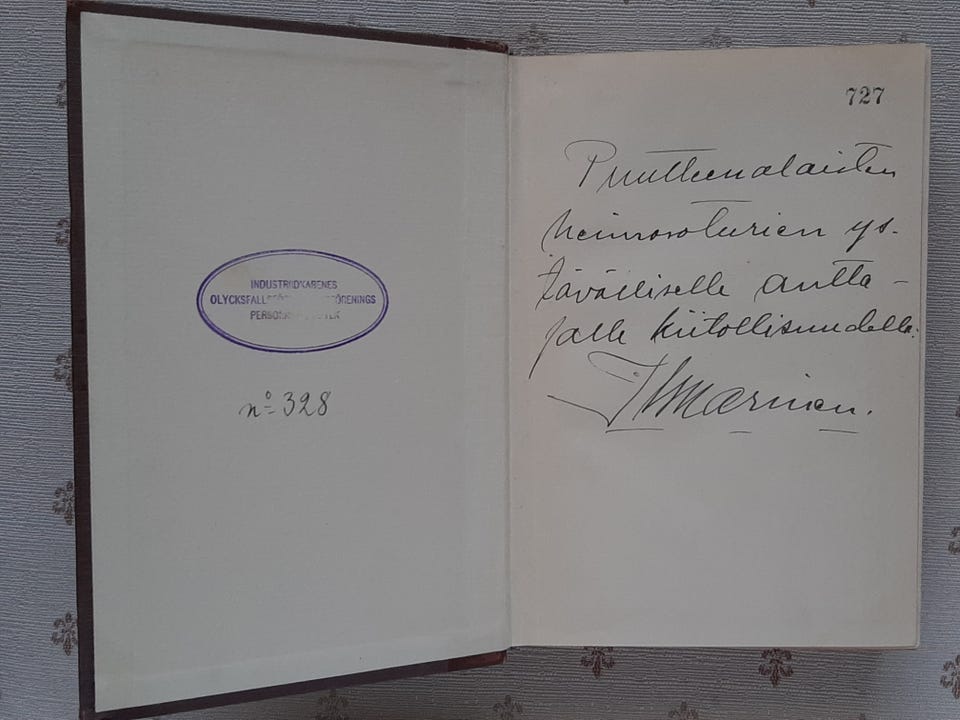 INDUSTRIIDKARENES
OLYCKSFALL FÖRENINGS
n:o 328
727
Puutteenalaisten
heimosoturien ys-
tävälliselle autta-
jalle kiitollisuudella: